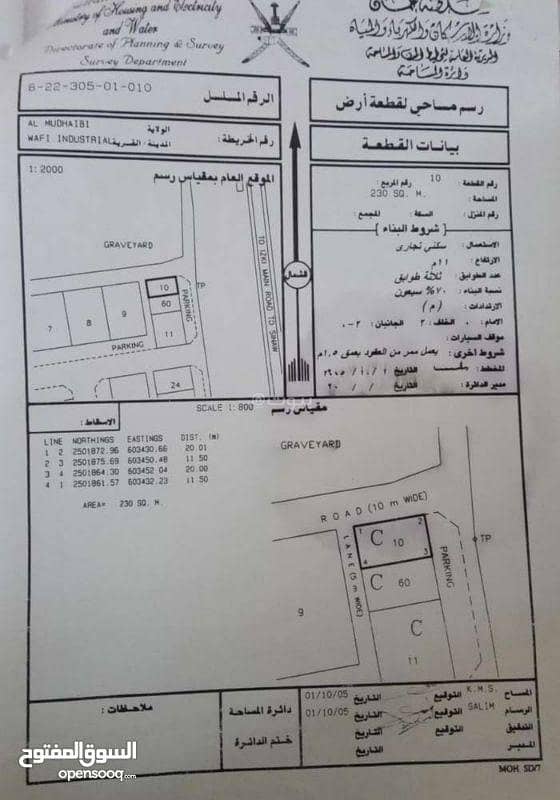 Ministry of Housing and Electricity
and Water
Directorate of Planning & Survey
Survey Department
سلطنة عمان
وزارة الإسكان والكهرباء والمياه
دائرة المساحة
6-22-305-01-010
الرقم المسلسل
رسم مساحي لقطعة أرض
AL MUDHAIBI
الولاية
WAFI INDUSTRIAL
المدينة / القرية
رقم الخريطة:
بيانات القطعة
1: 2000
الموقع العام بمقياس رسم
رقم القطعة : 10 رقم المربع :
المساحة : 230 SQ. M.
رقم المنزل : السكة : المجمع :
شروط البناء
الاستعمال : سكني تجاري
الارتفاع : ١١م
عدد الطوابق : ثلاثة طوابق
نسبة البناء : ٧٠% سبعون
الارتدادات : (م)
الامام : ٠ الخلف : ٣ الجانبان : ٣-٠
موقف السيارات :
شروط اخرى : يعمل ممر من العقود بعمق ١.٥م
المخطط : التاريخ
مدير الدائرة : التاريخ / / ٢٠
GRAVEYARD
TO IZKI MAIN ROAD TO SINAW
الشمال
10
TP
60
PARKING
7
8
9
11
PARKING
24
SCALE 1: 800
مقياس رسم
الاسقاط:
LINE NORTHINGS EASTINGS DIST. (m)
1 2 2501872.96 603430.66 20.01
2 3 2501875.69 603450.48 11.50
3 4 2501864.30 603452.04 20.00
4 1 2501861.57 603432.23 11.50
AREA= 230 SQ. M.
GRAVEYARD
ROAD (10 m WIDE)
LANE (5 m WIDE)
1
2
C 10
4
3
TP
PARKING
C 60
9
C
11
ملاحظات:
دائرة المساحة
ختم الدائرة
المساح K.M.S. التوقيع التاريخ 01/10/05
الرسام SALIM التوقيع التاريخ 01/10/05
التدقيق التوقيع التاريخ
المدير التاريخ
MOH. SD/7
السوق المفتوح
opensooq.com